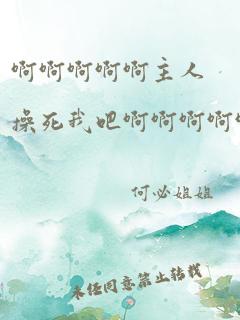 啊啊啊啊啊主人
操死我吧啊啊啊啊
何必姐姐
未经同意禁止转载